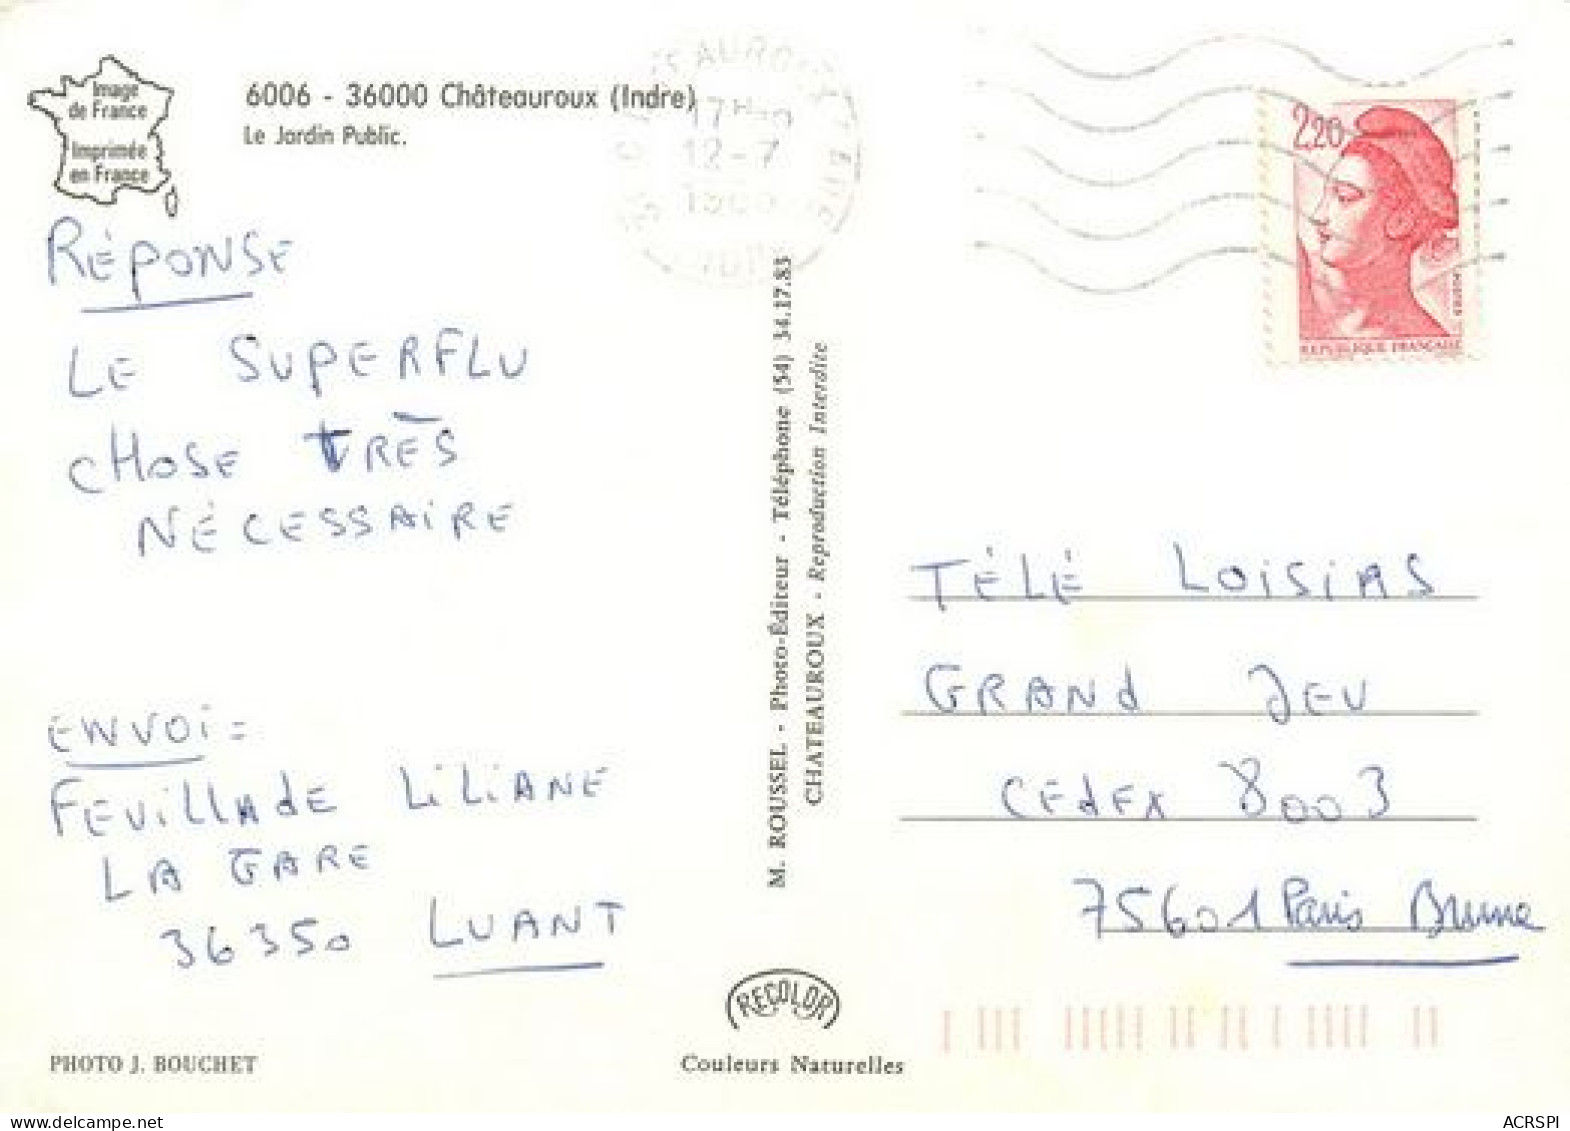 Image
de France
Imprimée
en France
6006 - 36000 Châteauroux (Indre)
Le Jardin Public.
12-7
2,20
POSTES
REPUBLIQUE FRANÇAISE
RÉPONSE
LE SUPERFLU
CHOSE TRÈS
NÉCESSAIRE
ENVOI =
FEUILLAdE LILIANE
LA GARE
36350 LUANT
M. ROUSSEL - Photo-Éditeur - Téléphone (54) 34.17.83
CHATEAUROUX - Reproduction Interdite
TÉLÉ LOISIRS
GRANd JEU
CEdEX 8003
75601 Paris Brune
RECOLOR
PHOTO J. BOUCHET
Couleurs Naturelles
ACRSPI